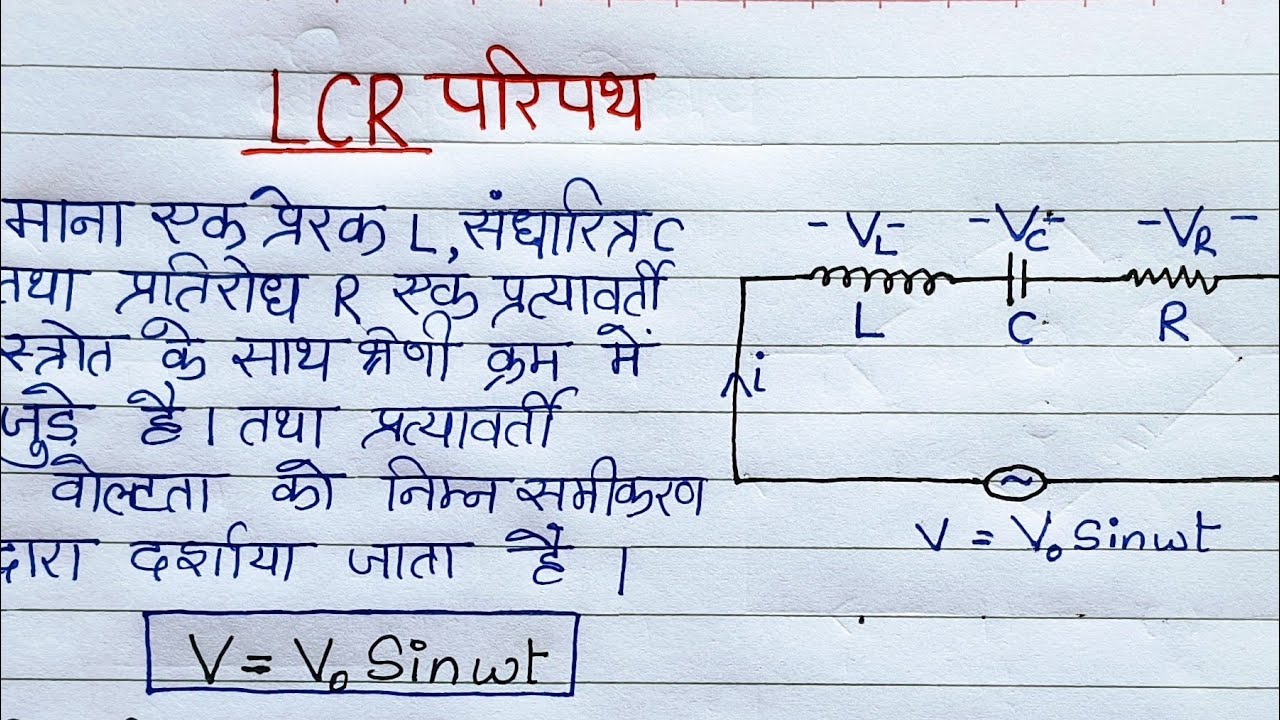 LCR परिपथ
माना एक प्रेरक L, संधारित्र C
तथा प्रतिरोध R एक प्रत्यावर्ती
स्त्रोत के साथ श्रेणी क्रम में
जुड़े है। तथा प्रत्यावर्ती
वोल्टता को निम्न समीकरण
द्वारा दर्शाया जाता है ।
V = V₀ Sinwt
- V_L - - V_C - - V_R -
L C R
i
~
V = V₀ Sinwt